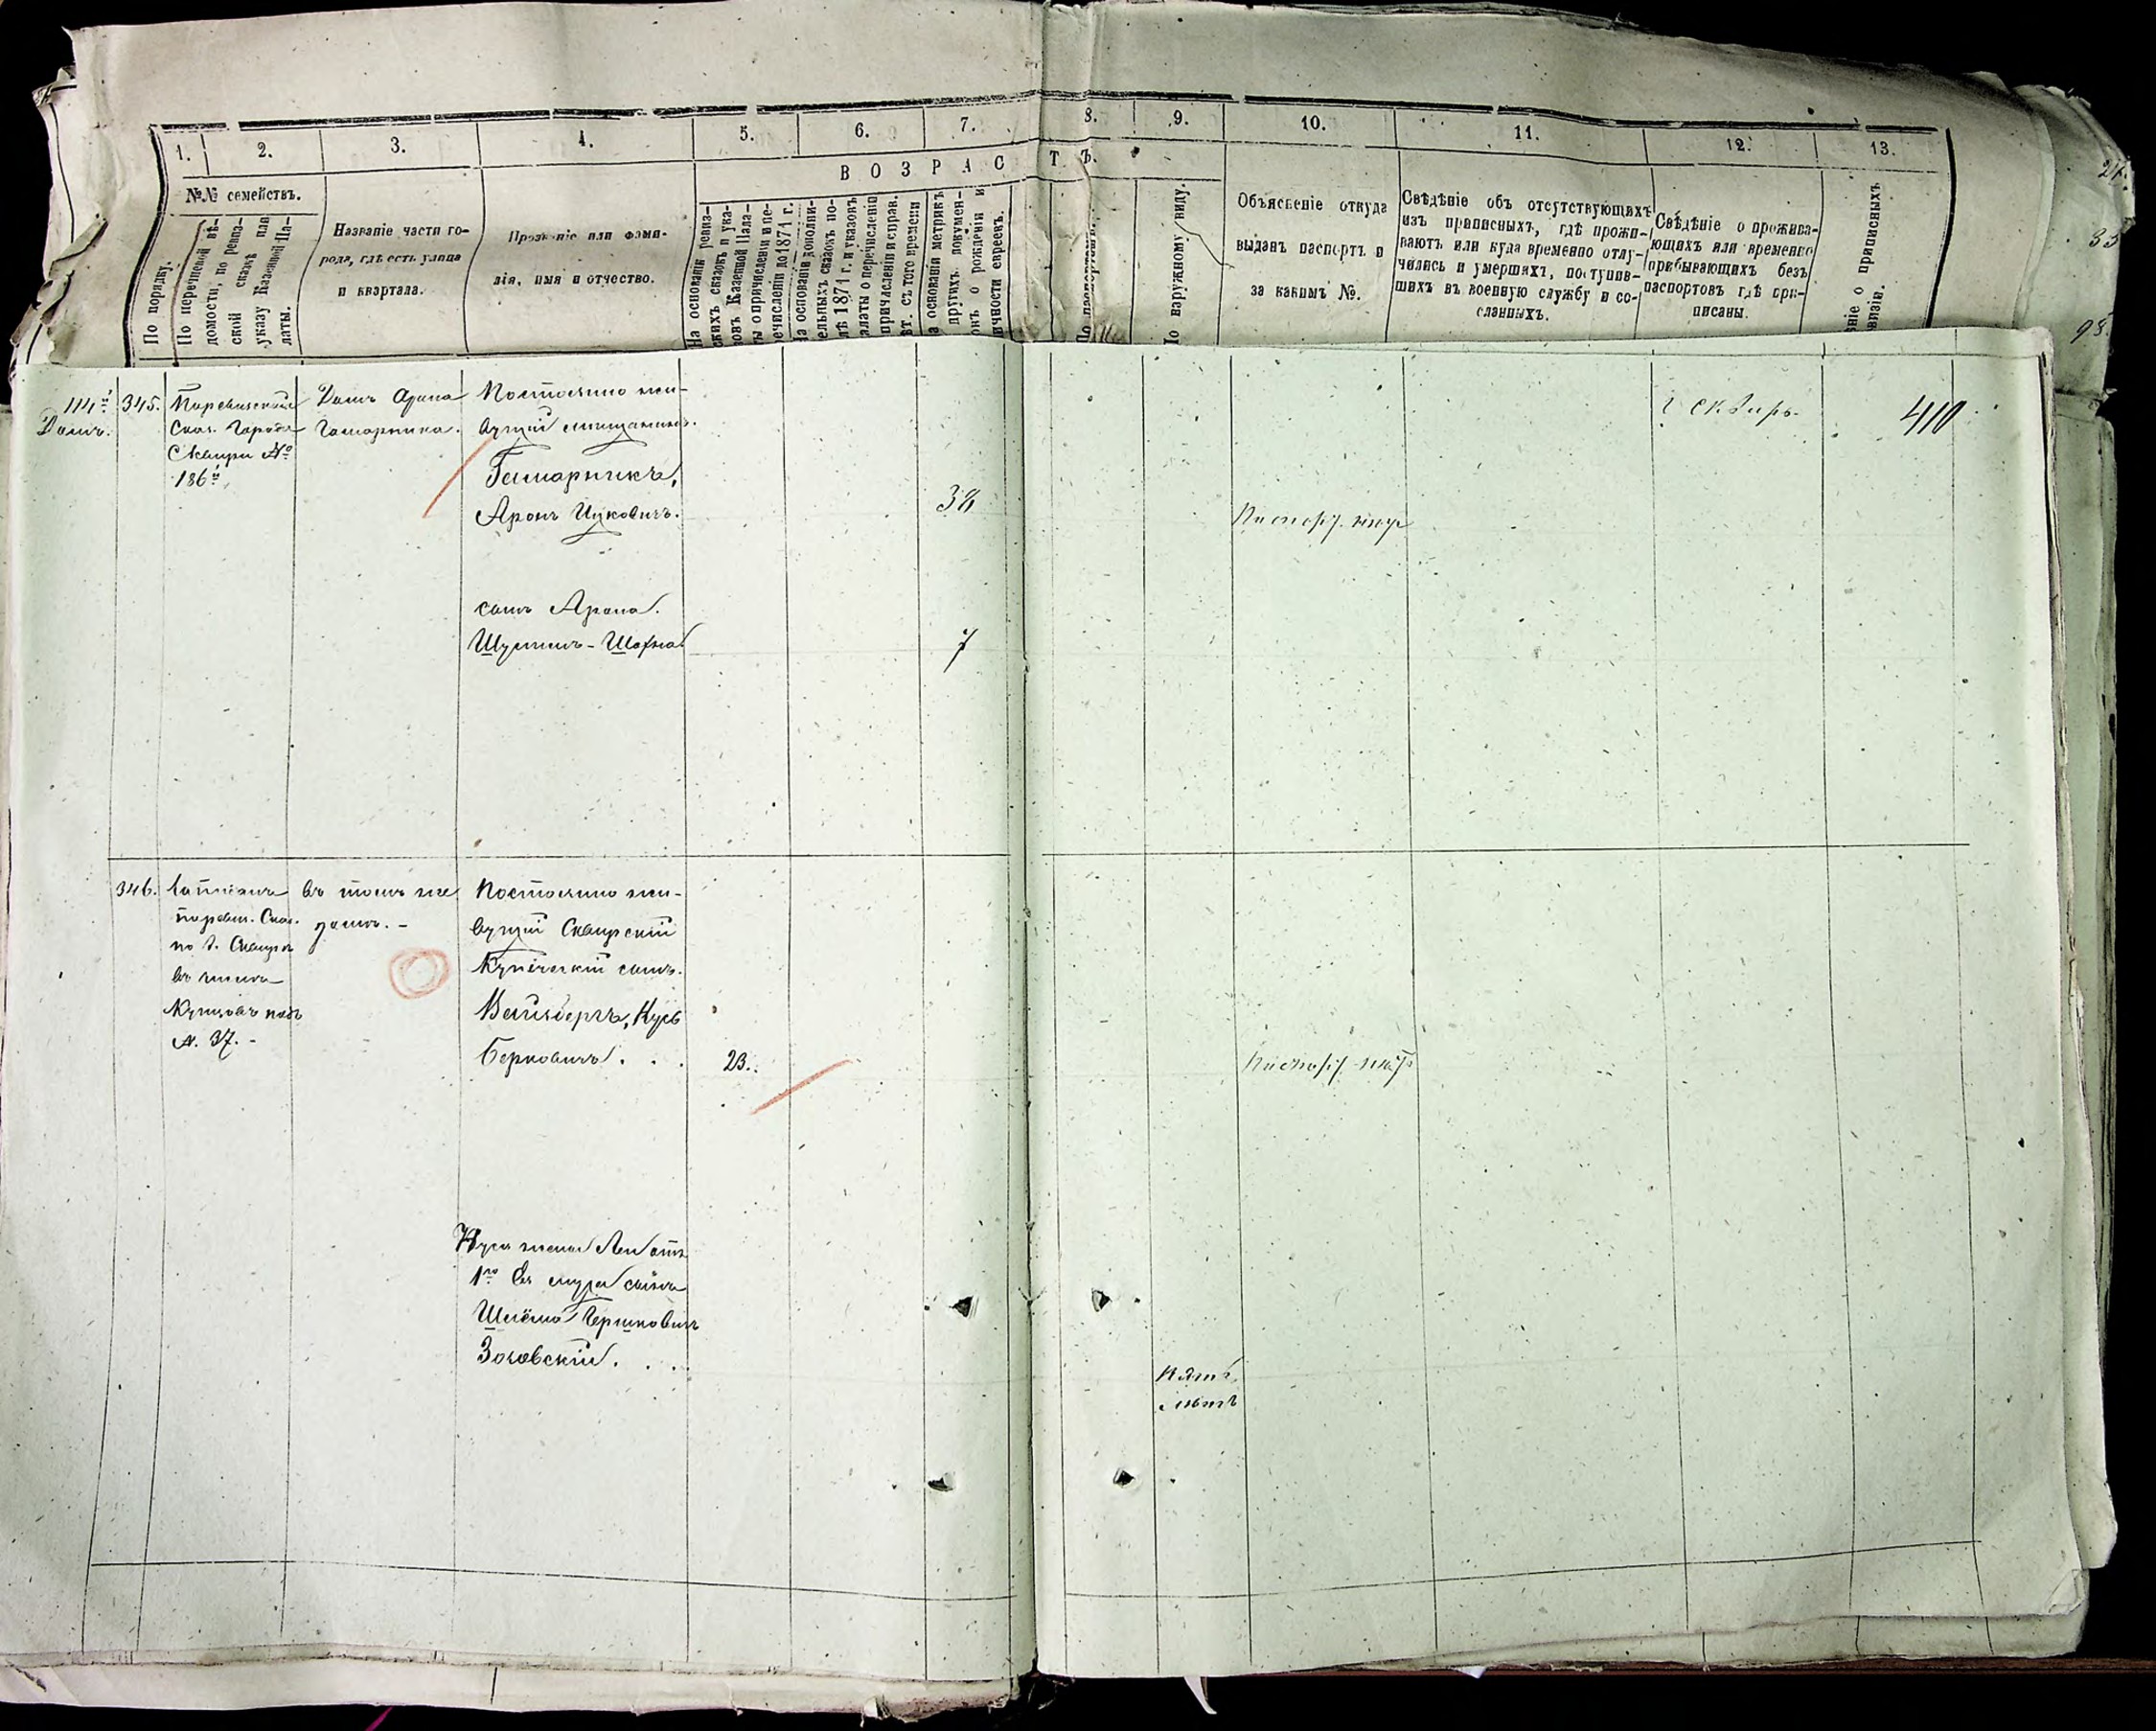 1.
2.
3.
4.
5.
6.
7.
8.
9.
10.
11.
12.
13.
ВОЗРАСТЪ.
№№ семействъ.
По порядку.
По перечневой вѣ-
домости, по ревиз-
ской сказкѣ или
указу Казенной Па-
латы.
Названіе части го-
рода, гдѣ есть улица
и квартала.
Прозваніе или фами-
лія, имя и отчество.
На основаніи ревиз-
скихъ сказокъ и ука-
зовъ Казенной Пала-
ты о причисленіи и пе-
речисленіи до 1874 г.
а основаніи дополни-
ельныхъ сказокъ по-
лѣ 1874 г. и указовъ
алаты о перечисленіи
причисленіи и справ.
ѣт. съ того времени
а основаніи метрикъ
другихъ докумен-
овъ о рожденіи и
ичности евреевъ.
По наружному виду.
Объясненіе откуда
выданъ паспортъ и
за какимъ №.
Свѣдѣніе объ отсутствующихъ
изъ приписныхъ, гдѣ прожи-
ваютъ или куда временно отлу-
чились и умершихъ, поступив-
шихъ въ военную службу и со-
сланныхъ.
Свѣдѣніе о прожива-
ющихъ или временно
прибывающихъ безъ
паспортовъ гдѣ при-
писаны.
ніе о приписныхъ
визіи.
114й
Домъ.
345.
Сказ. Города
Сквири №
186й
Домъ Арона
Гамарника.
Постоянно жи-
вущій мищанинъ.
Гамарникъ,
Аронъ Ицковичъ.
38
сынъ Арона.
7
г Сквирь.
410
346.
Сказ.
по г. Сквирѣ
въ числѣ
Купцовъ подъ
№. 37. -
въ томъ же
домѣ. -
Постоянно жи-
вущій Сквирскій
Купеческій сынъ.
Вайнбергъ, Кусь
Берковичъ . . .
23.
Куся жена Леи отъ
1го ея мужа сынъ
Шлёма Гершковичъ
. . .
пять
лѣтъ